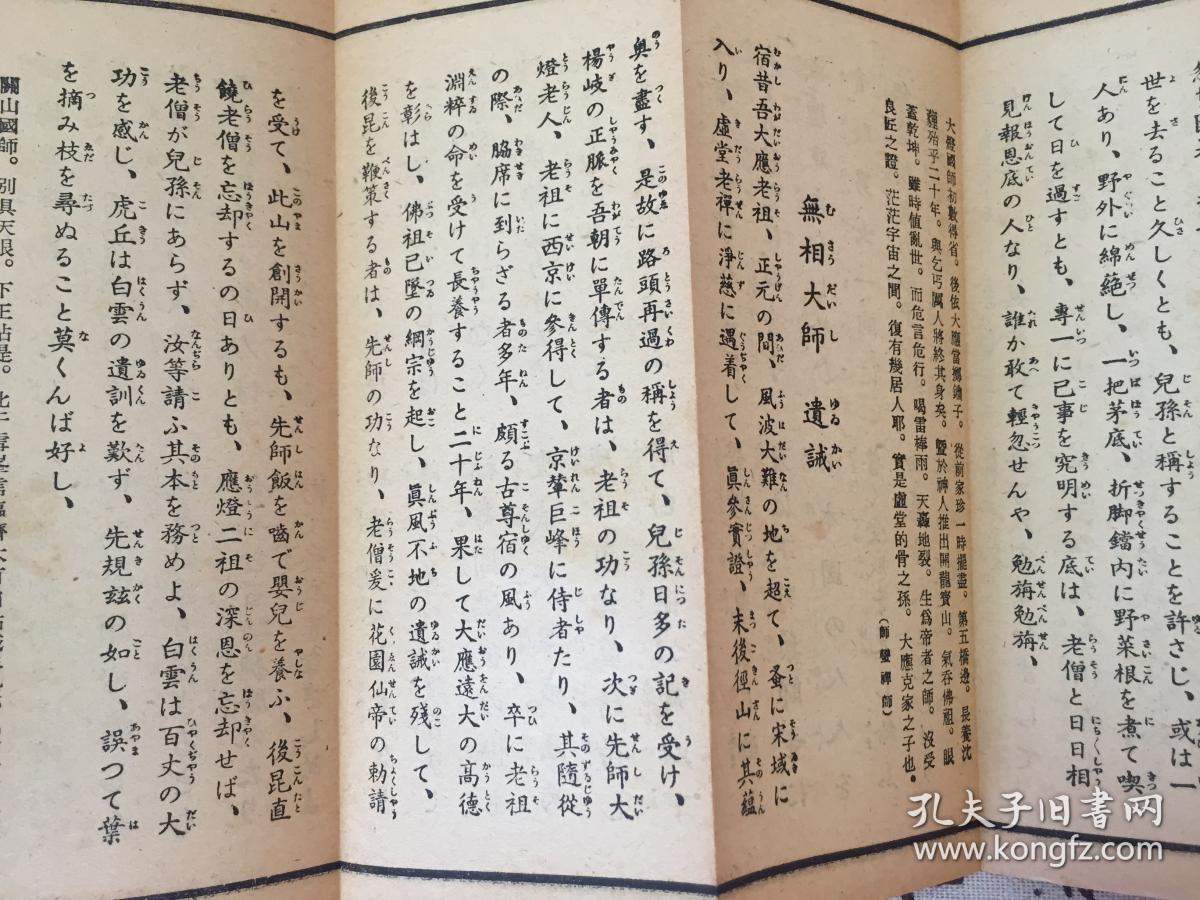 世を去ること久しくとも、兒孫と稱することを許さじ、或は一
人あり、野外に綿蕝し、一把茅底、折脚鐺内に野菜根を煮て喫
して日を過すとも、專一に己事を究明する底は、老僧と日日相
見報恩底の人なり、誰か敢て輕忽せんや、勉旃勉旃、
大燈國師初數得省。後依大應當擲鑰子。從前家珍一時攞盡。第五橋邊。長養沈
韞殆乎二十年。與乞丐厲人將終其身矣。曁於神人推出開龍寶山。氣呑佛祖。眼
蓋乾坤。雖時値亂世。而危言危行。喝雷棒雨。天轟地裂。生爲帝者之師。沒受
良匠之證。茫茫宇宙之間。復有幾居人耶。實是虛堂的骨之孫。大應克家之子也。
(師蠻禪師)
無相大師遺誡
宿昔吾大應老祖、正元の間、風波大難の地を超て、蚤に宋域に
入り、虛堂老禪に淨慈に遇着して、眞參實證、末後徑山に其蘊
奥を盡す、是故に路頭再過の稱を得て、兒孫日多の記を受け、
楊岐の正脈を吾朝に單傳する者は、老祖の功なり、次に先師大
燈老人、老祖に西京に參得して、京輦巨峰に侍者たり、其隨從
の際、脇席に到らざる者多年、頗る古尊宿の風あり、卒に老祖
淵粹の命を受けて長養すること二十年、果して大應遠大の高德
を彰はし、佛祖已墜の綱宗を起し、眞風不地の遺誡を殘して、
後昆を鞭策する者は、先師の功なり、老僧爰に花園仙帝の勅請
を受て、此山を創開するも、先師飯を嚙で嬰兒を養ふ、後昆直
饒老僧を忘却するの日ありとも、應燈二祖の深恩を忘却せば、
老僧が兒孫にあらず、汝等請ふ其本を務めよ、白雲は百丈の大
功を感じ、虎丘は白雲の遺訓を歎ず、先規玆の如し、誤つて葉
を摘み枝を尋ぬること莫くんば好し、
關山國師。別具天眼。
孔夫子旧书网
www.kongfz.com